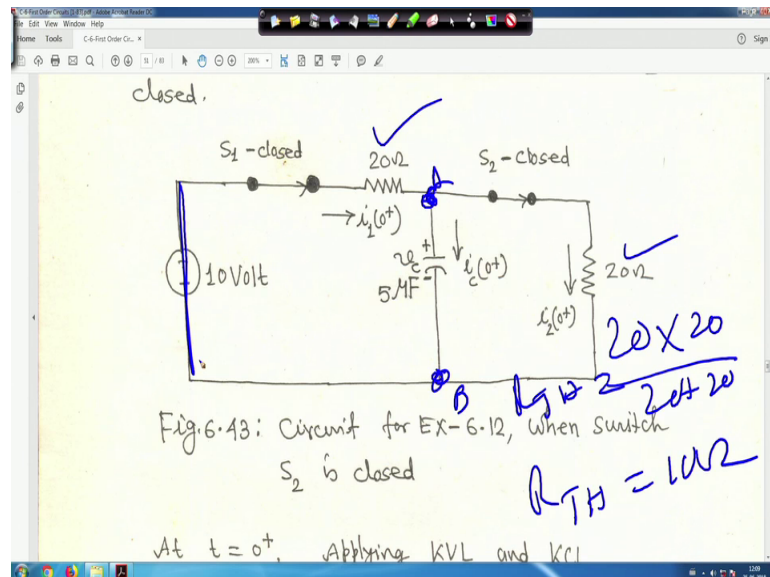 C-6-First Order Circuits [1-83].pdf - Adobe Acrobat Reader DC
File Edit View Window Help
Home Tools C-6-First Order Cir... × Sign
51 / 83 200%
closed.
S1 -closed
20Ω
A
S2 -closed
→i1(0+)
10Volt
vc + -
5MF
ic(0+)
i2(0+)
20Ω
B
RTH = 20 X 20
20+20
RTH = 10Ω
Fig.6.43: Circuit for EX-6.12, when switch
S2 is closed
At t = 0+, Applying KVL and KCL
12:09